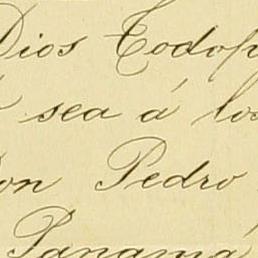 Dios Todop
sea á los
on Pedro
Panamá